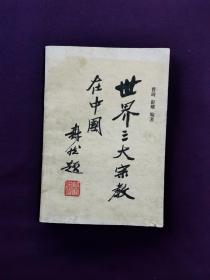 曹琦 彭耀 编著
世界三大宗教
在中國
寿彝題